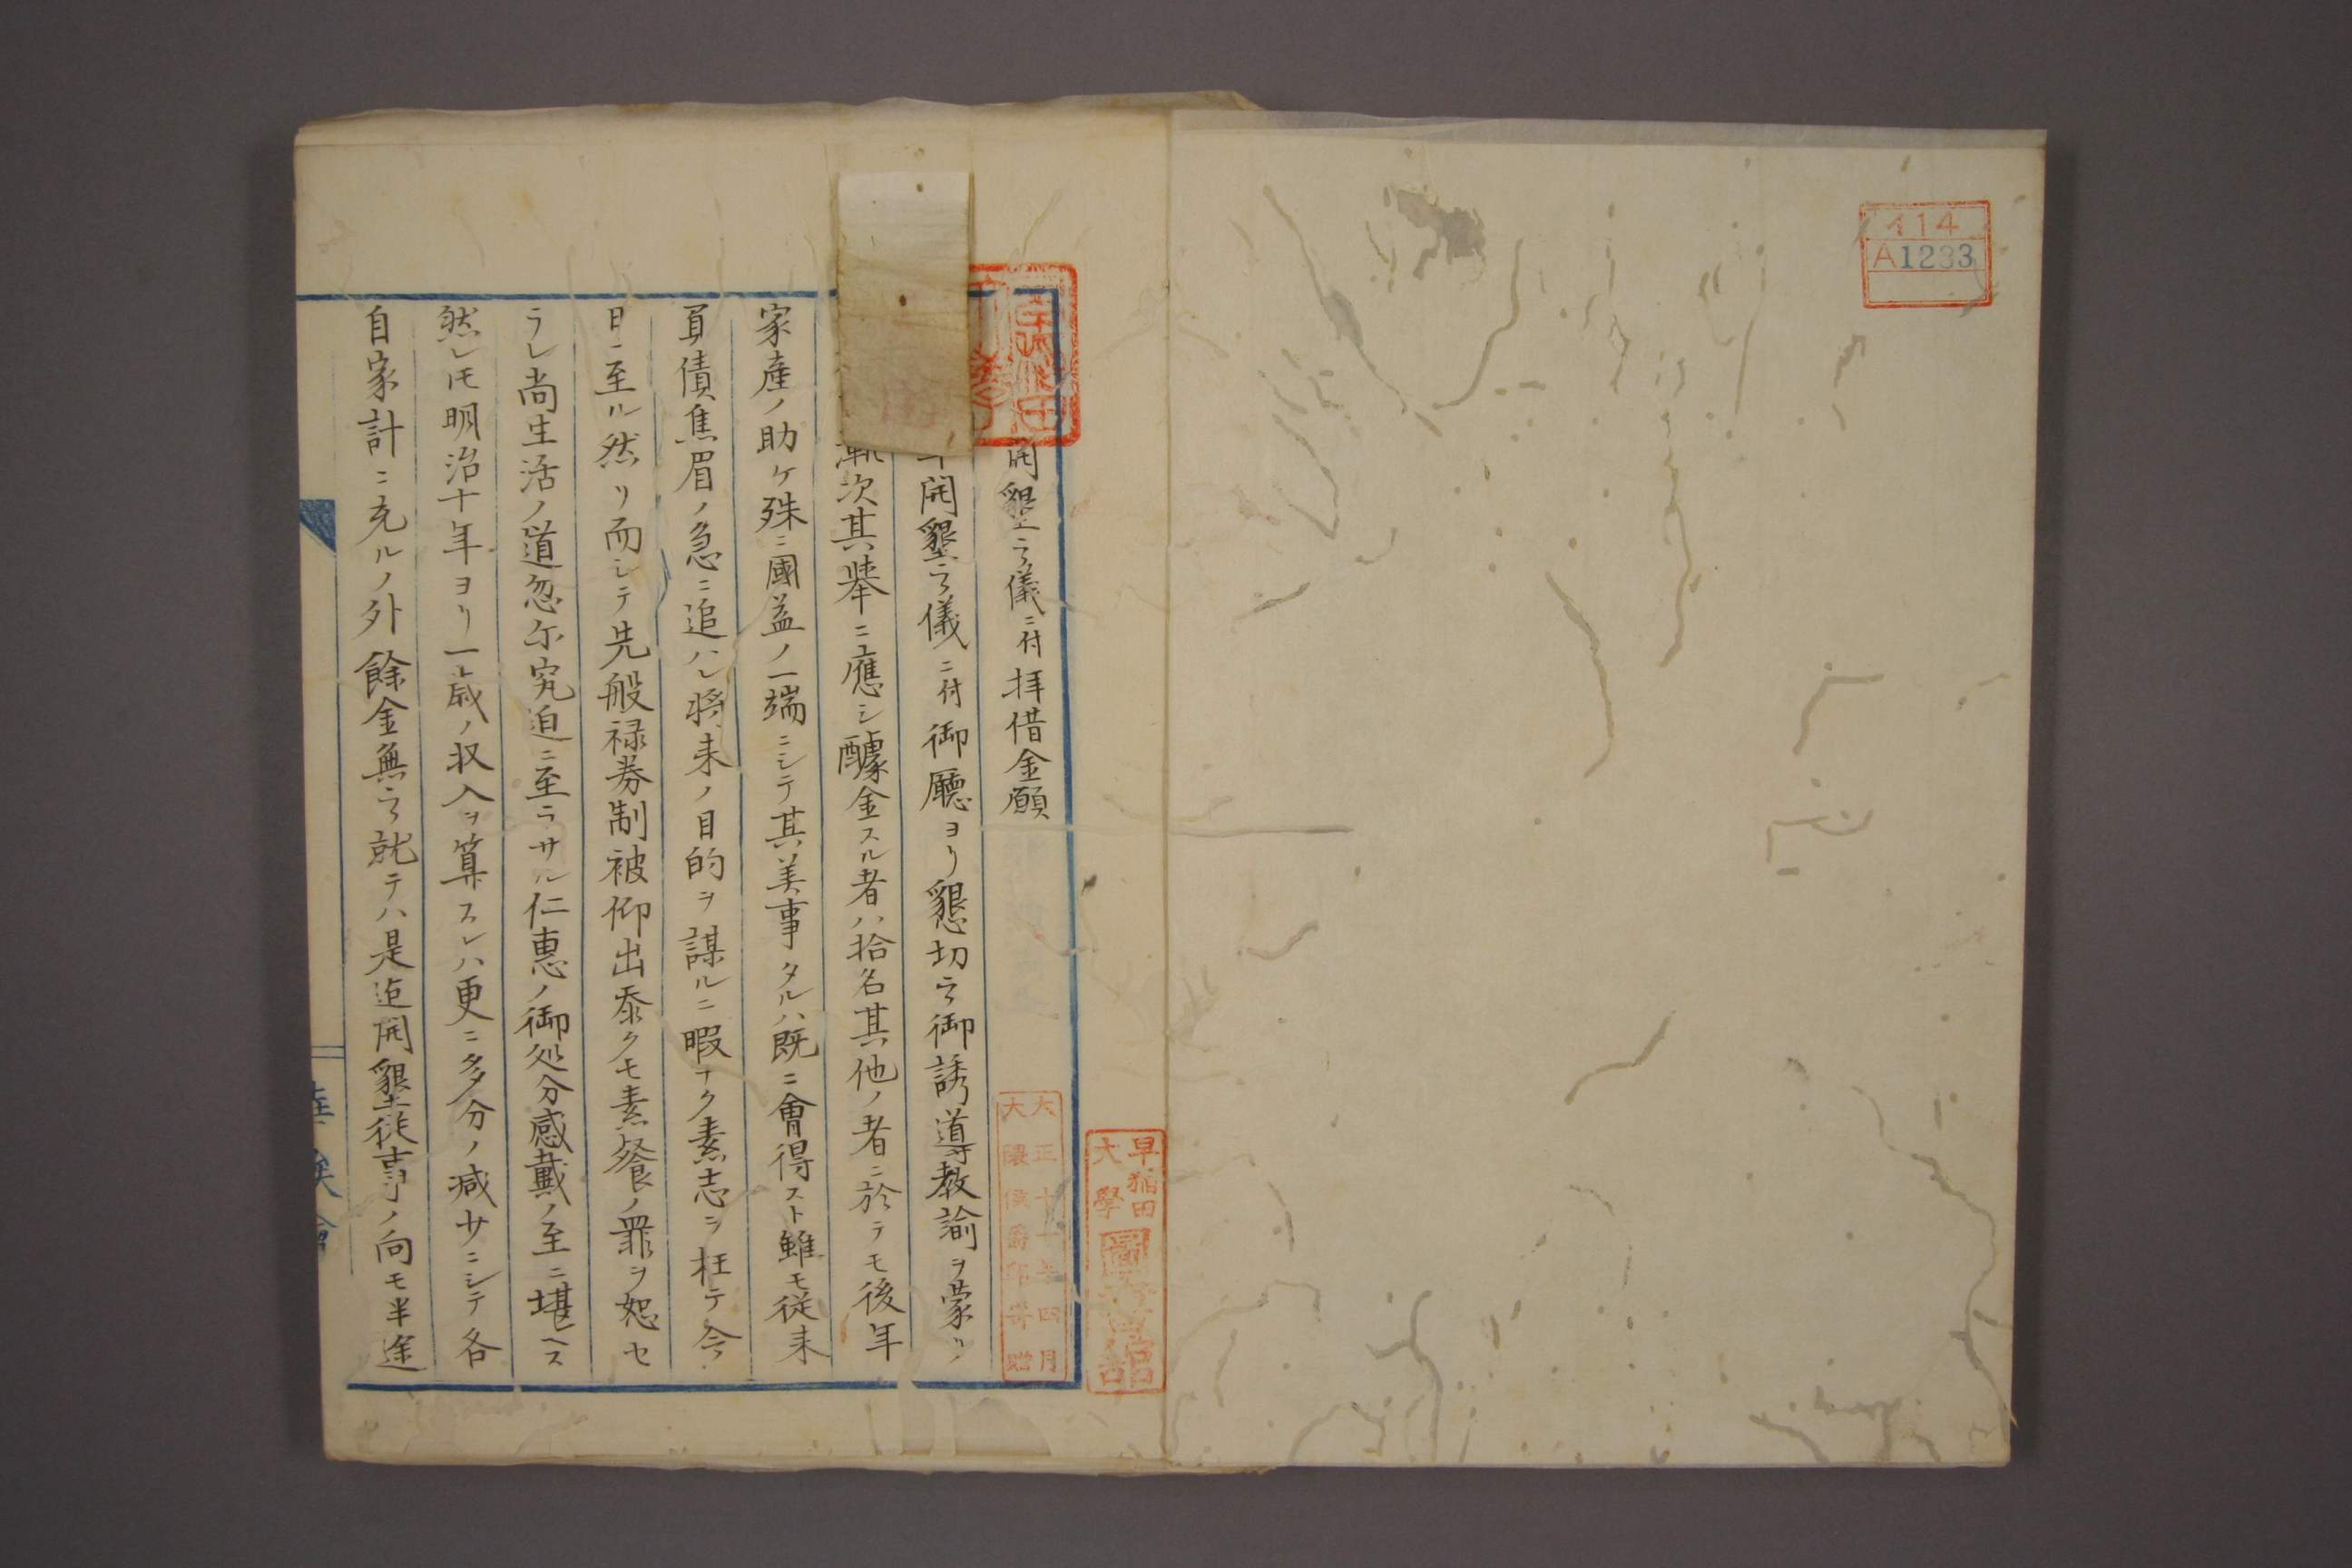 イ14
A1233
早稲田
大學
圖書館
大正十一年四月
大隈侯爵邸寄贈
開墾之儀ニ付拝借金願
開墾之儀ニ付御廳ヨリ懇切之御誘導教諭ヲ蒙リ
漸次其擧ニ應シ醵金スル者ハ拾名其他ノ者ニ於テモ後年
家産ノ助ケ殊ニ國益ノ一端ニシテ其美事タルハ既ニ會得スト雖モ従来
負債焦眉ノ急ニ追ハレ将来ノ目的ヲ謀ルニ暇ナク素志ヲ枉テ今
日ニ至ル然リ而シテ先般禄券制被仰出忝クモ素餐ノ罪ヲ恕セ
ラレ尚生活ノ道忽尓究迫ニ至ラサル仁恵ノ御処分感戴ノ至ニ堪ヘス
然レ𪜈明治十年ヨリ一歳ノ収入ヲ算スレハ更ニ多分ノ減少ニシテ各
自家計ニ充ルノ外餘金無之就テハ是迠開墾従事ノ向モ半途